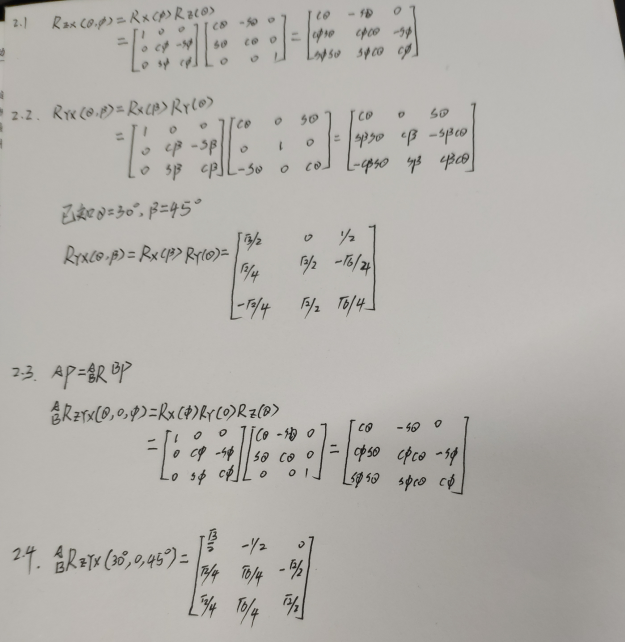 2.1 Rzx(θ,φ)=Rx(φ)Rz(θ)
=[1 0 0; 0 cφ -sφ; 0 sφ cφ][cθ -sθ 0; sθ cθ 0; 0 0 1]=[cθ -sθ 0; cφsθ cφcθ -sφ; sφsθ sφcθ cφ]
2.2. RYX(θ,β)=Rx(β)RY(θ)
=[1 0 0; 0 cβ -sβ; 0 sβ cβ][cθ 0 sθ; 0 1 0; -sθ 0 cθ]=[cθ 0 sθ; sβsθ cβ -sβcθ; -cβsθ sβ cβcθ]
已知θ=30°,β=45°
RYX(θ,β)=Rx(β)RY(θ)=[√3/2 0 1/2; √2/4 √2/2 -√6/4; -√2/4 √2/2 √6/4]
2.3. AP=ABR BP
ABRZYX(θ,0,φ)=Rx(φ)RY(0)Rz(θ)
=[1 0 0; 0 cφ -sφ; 0 sφ cφ][cθ -sθ 0; sθ cθ 0; 0 0 1]=[cθ -sθ 0; cφsθ cφcθ -sφ; sφsθ sφcθ cφ]
2.4. ABRZYX(30°,0,45°)=[√3/2 -1/2 0; √2/4 √6/4 -√2/2; √2/4 √6/4 √2/2]